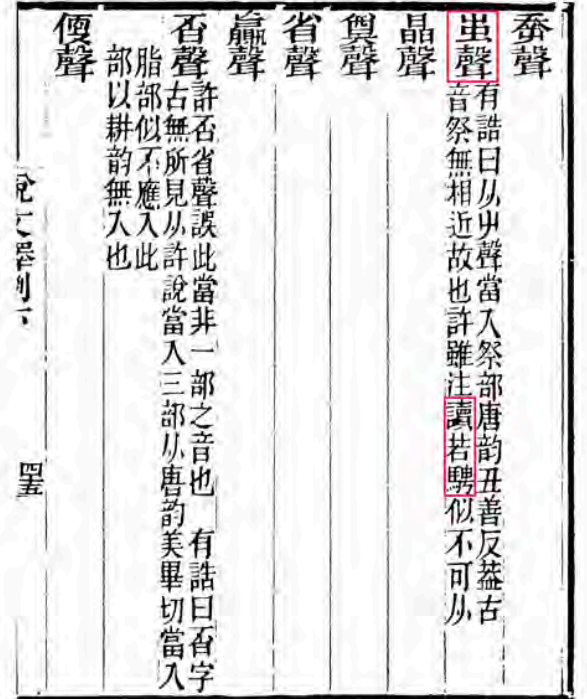 聲
聲
有誥曰从屮聲當入祭部唐韵丑善反葢古
音祭無相近故也許雖注讀若騁似不可从
晶聲
聲
省聲
聲
聲
許否省聲誤此當非一部之音也　有誥曰字
古無所見从許說當入三部从唐韵美畢切當入
脂部似不應入此
部以耕韵無入也
聲
說文釋例六
四五